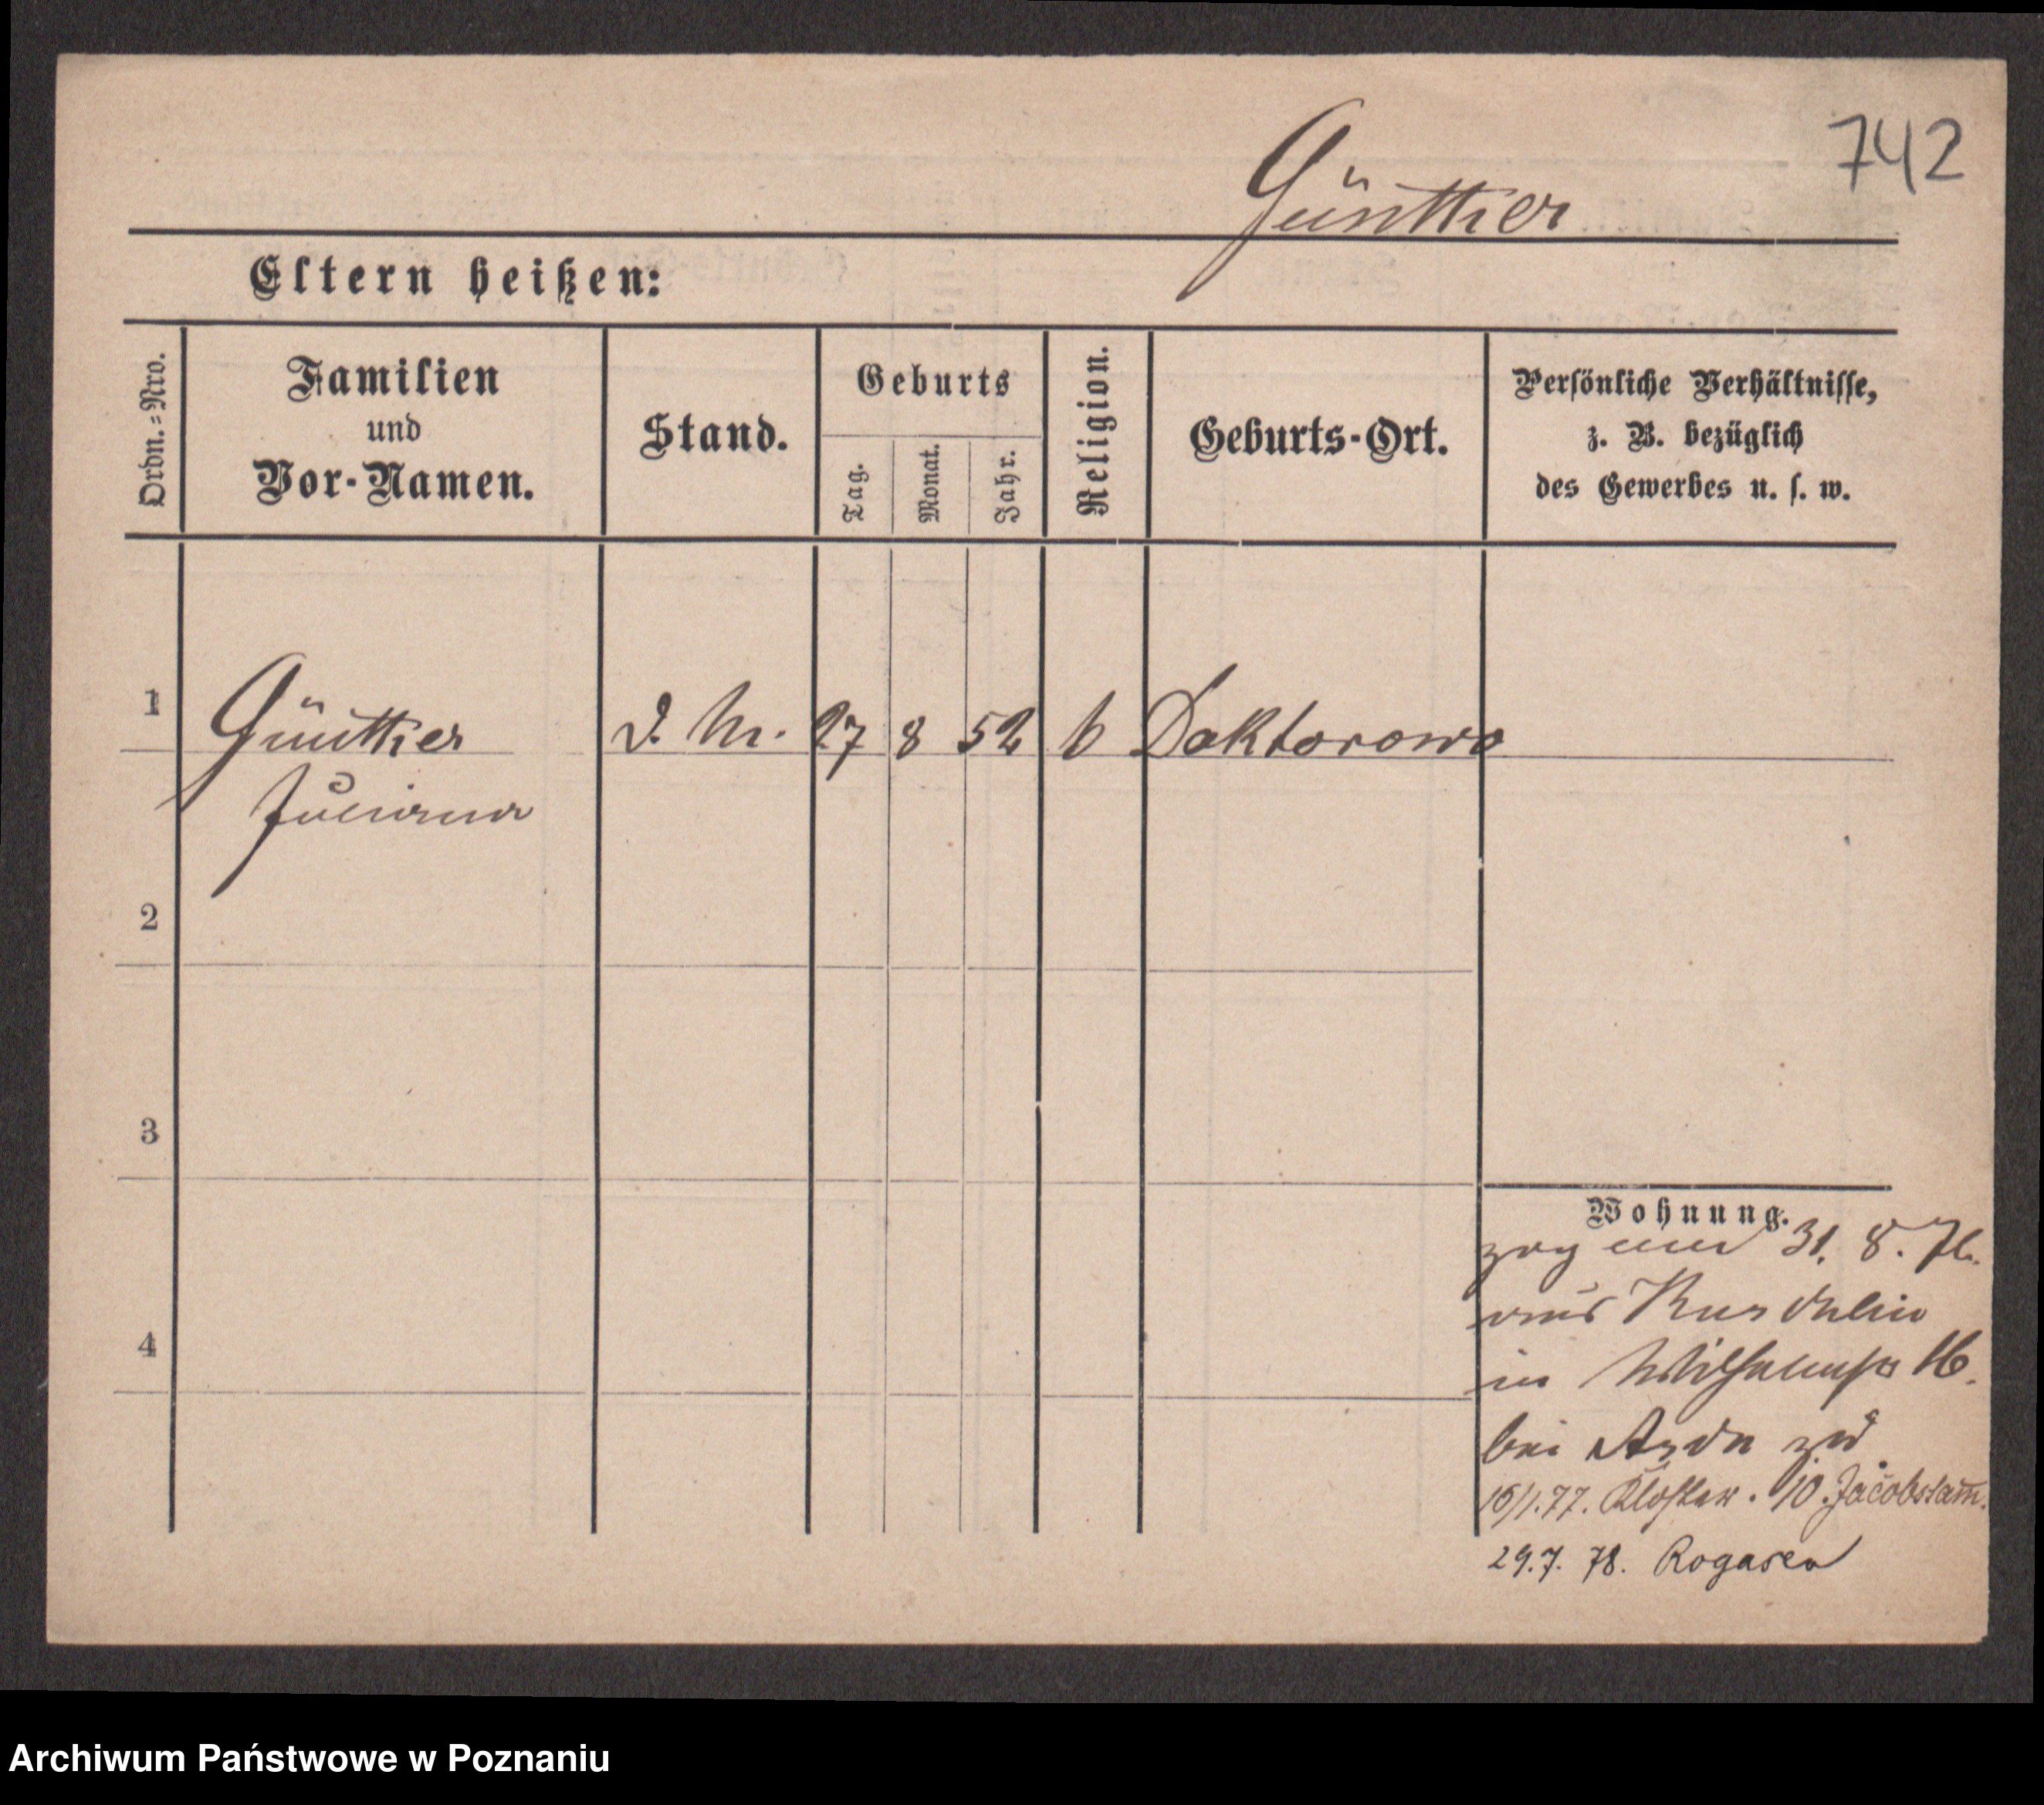 742
Günther
Eltern heißen:
Ordn.=Nro.
Familien
und
Vor-Namen.
Stand.
Geburts
Tag.
Monat.
Jahr.
Religion.
Geburts-Ort.
Persönliche Verhältnisse,
z. B. bezüglich
des Gewerbes u. s. w.
1
Günther
D. M. 27 8 52 k Doktorowo
Juliana
2
3
4
Wohnung.
zog am 31. 8. 76.
aus
in Wilhelmstr 16.
bei
16/1.77. Kloster. 10. Jacobsohn.
29.7. 78. Rogasen
Archiwum Państwowe w Poznaniu